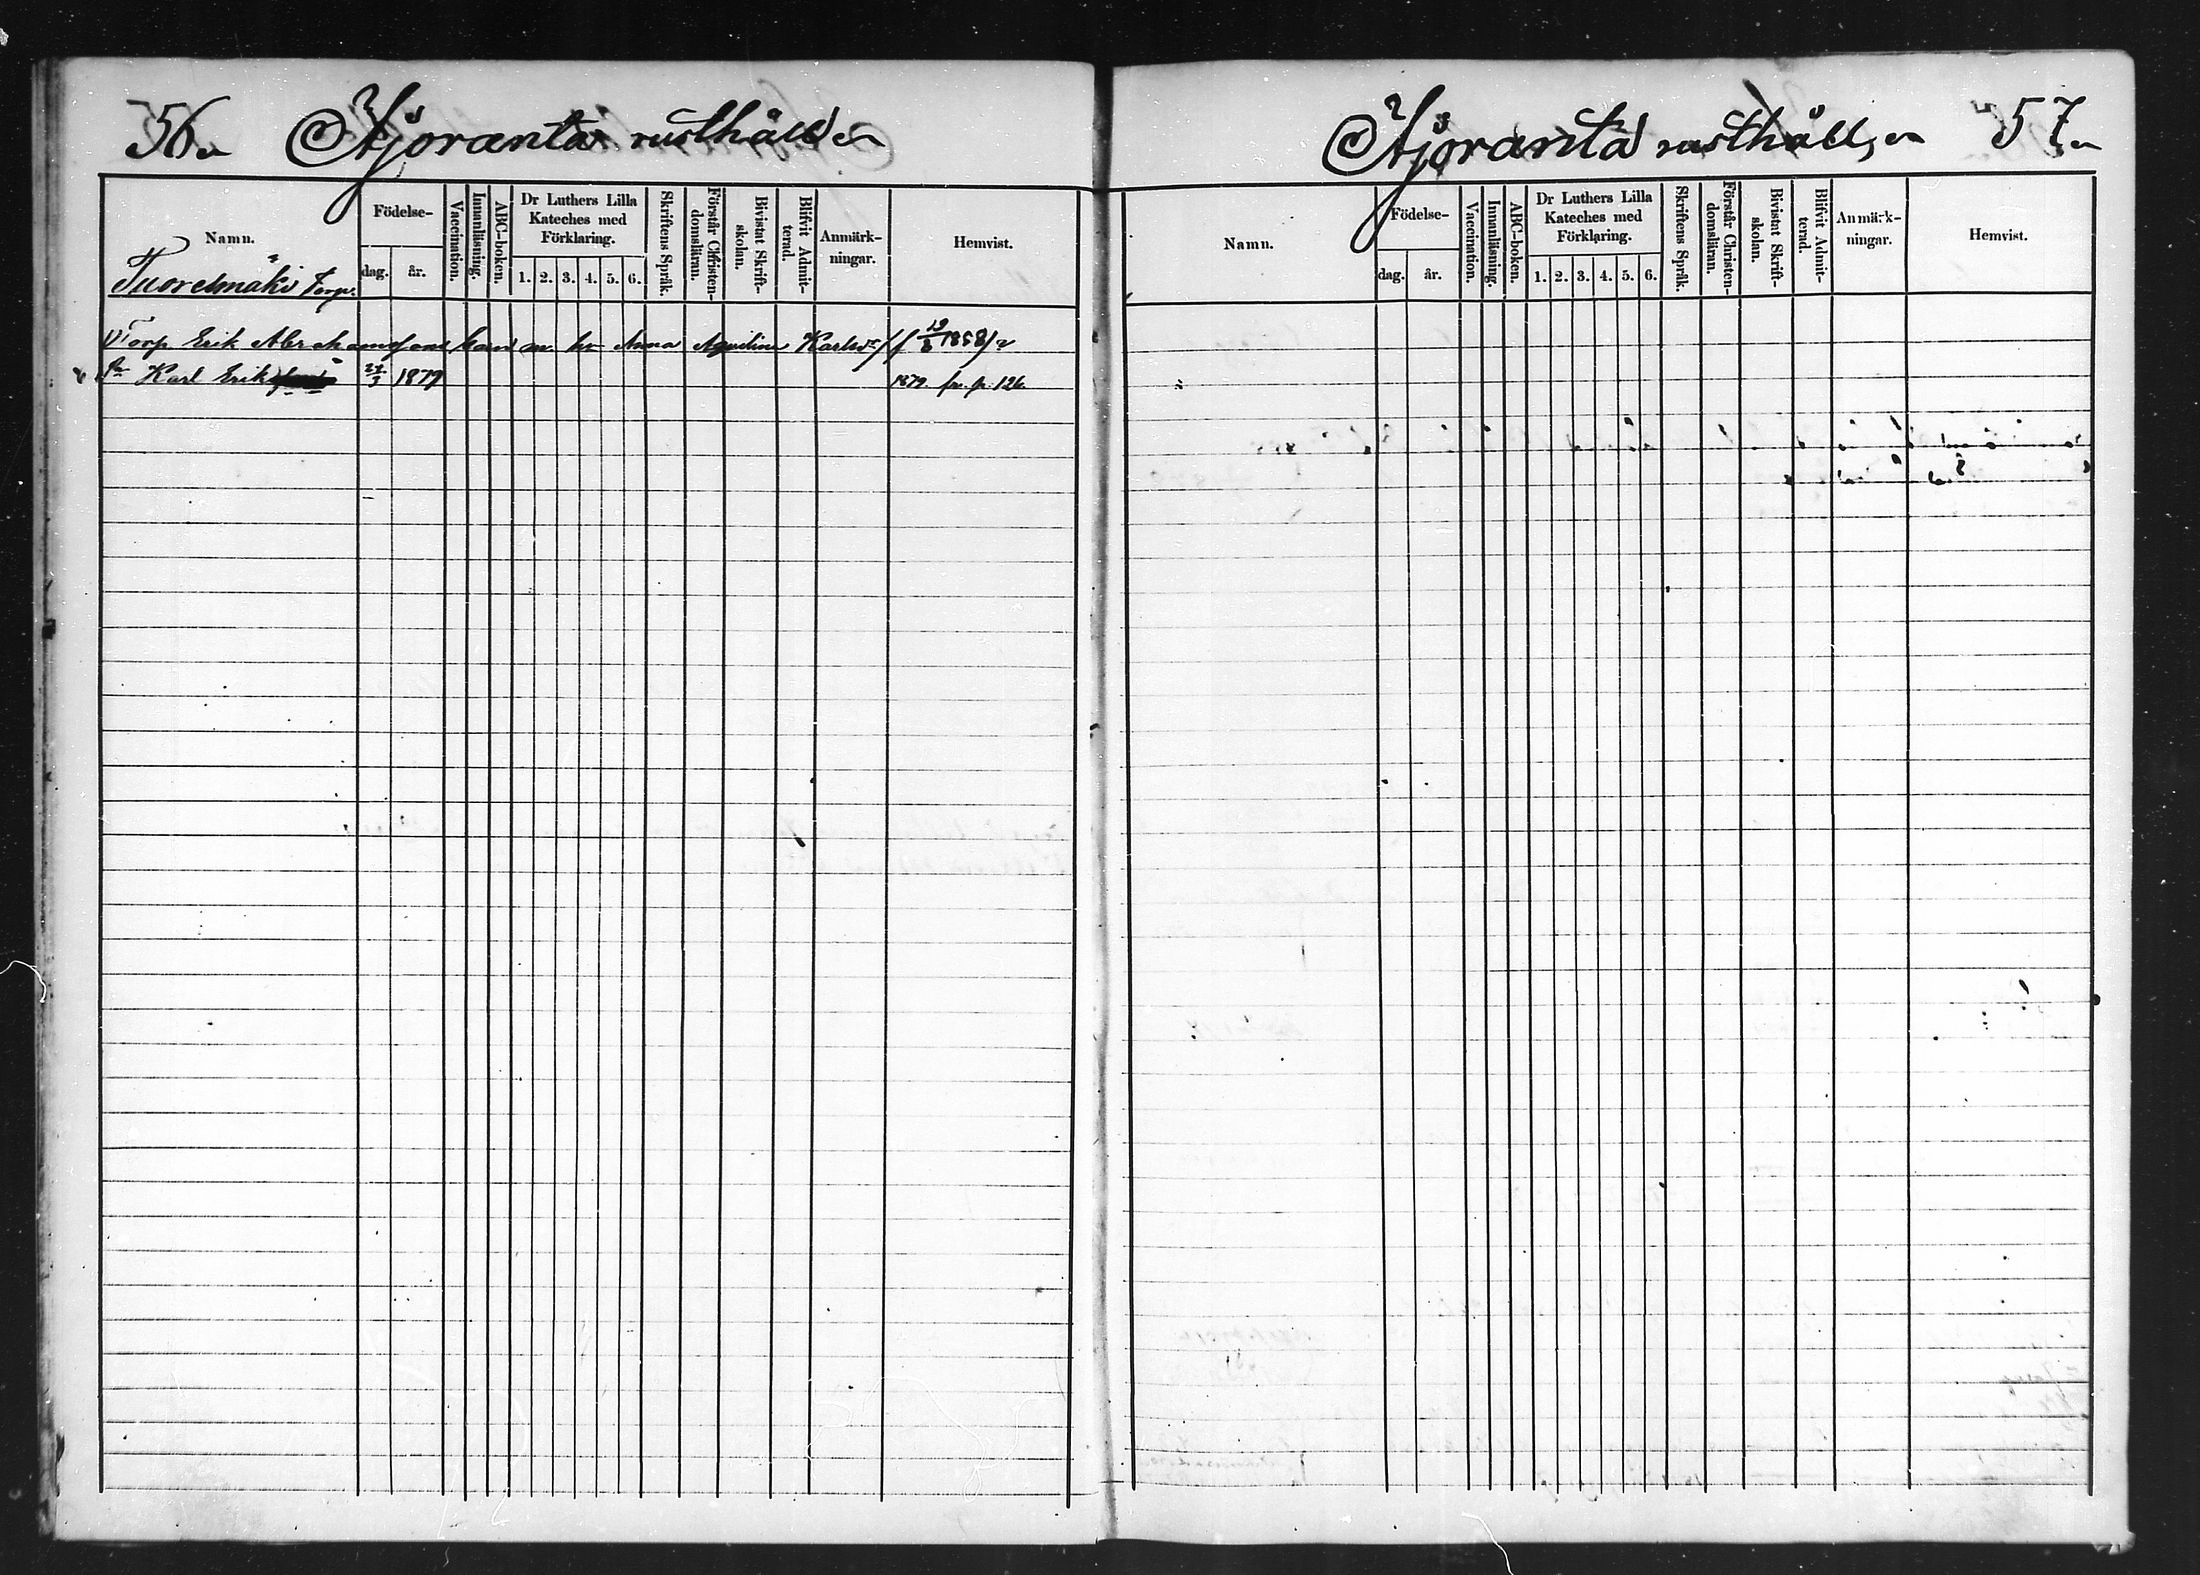 56.
Äjöranta rusthåll
Namn.
Födelse-
dag.
år.
Vaccination.
Innanläsning.
ABC-boken.
Dr Luthers Lilla
Kateches med
Förklaring.
1. 2. 3. 4. 5. 6.
Skriftens Språk.
Förstår Christen-
domsläran.
Bivistat Skrift-
skolan.
Blifvit Admit-
terad.
Anmärk-
ningar.
Hemvist.
Tuorelmäki Torp.
Torp Erik Abrahamsson barn m. h. Anna Aqvilina Karlsdr (f 19/3 1858)
Karl Erik 27/3 1879 1879 fr. p. 126
Äjöranta rusthåll,
57.
Namn.
Födelse-
dag.
år.
Vaccination.
Innanläsning.
ABC-boken.
Dr Luthers Lilla
Kateches med
Förklaring.
1. 2. 3. 4. 5. 6.
Skriftens Språk.
Förstår Christen-
domsläran.
Bivistat Skrift-
skolan.
Blifvit Admit-
terad.
Anmärk-
ningar.
Hemvist.